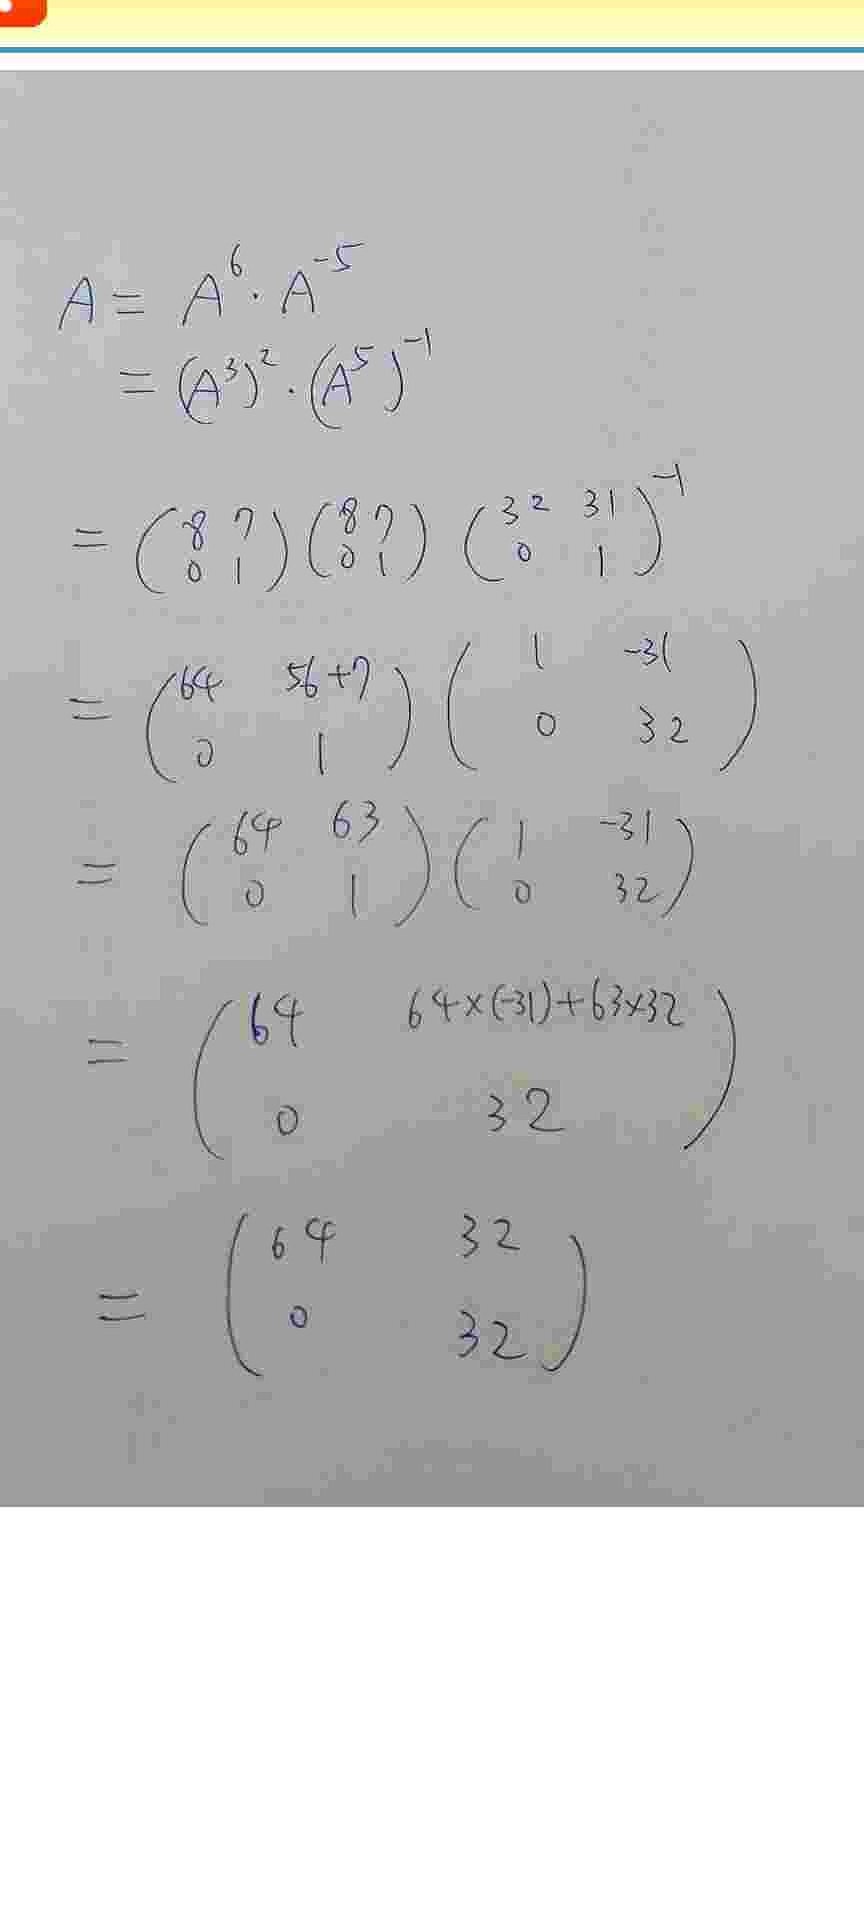 A = A^6 · A^-5
= (A^3)^2 · (A^5)^-1
= (8 7
0 1) (8 7
0 1) (32 31
0 1)^-1
= (64 56+7
0 1) (1 -31
0 32)
= (64 63
0 1) (1 -31
0 32)
= (64 64×(-31)+63×32
0 32)
= (64 32
0 32)